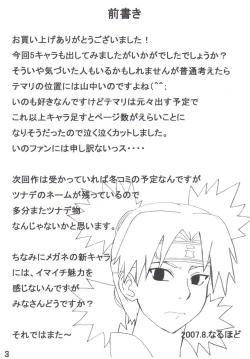 前書き
お買い上げありがとうございました！
今回5キャラも出してみましたがいかがでしたでしょうか？
そういや気づいた人もいるかもしれませんが普通考えたら
テマリの位置には山中いのですよね(^^;
いのも好きなんですけどテマリは元々出す予定で
これ以上キャラ足すとページ数がえらいことに
なりそうだったので泣く泣くカットしました。
いのファンには申し訳ないっス・・・・
次回作は受かっていれば冬コミの予定なんですが
ツナデのネームが残っているので
多分またツナデ物
なんじゃないかと思います。
ちなみにメガネの新キャラ
には、イマイチ魅力を
感じないんですが
みなさんどうですか？
それではまた～
2007.8.なるほど
3